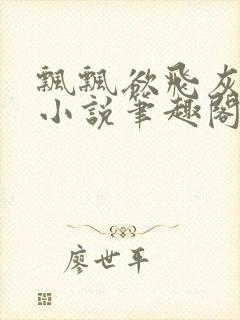 飄飄欲飛灰
小說筆趣閣
廖世平